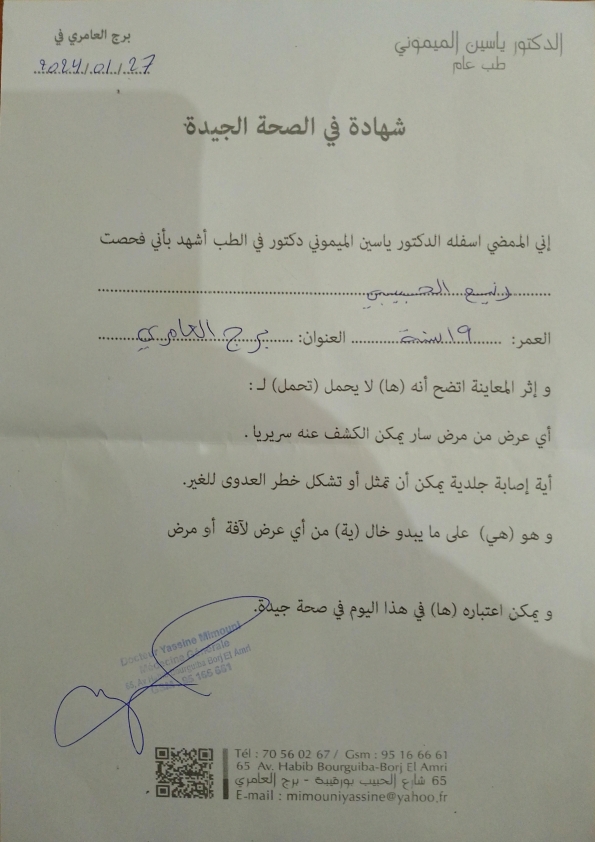 الدكتور ياسين الميموني
طب عام
برج العامري في
2024/01/27
شهادة في الصحة الجيدة
إني الممضي اسفله الدكتور ياسين الميموني دكتور في الطب أشهد بأني فحصت
الحبيبي
العمر: 19 سنة العنوان: برج العامري
و إثر المعاينة اتضح أنه (ها) لا يحمل (تحمل) لـ :
أي عرض من مرض سار يمكن الكشف عنه سريريا .
أية إصابة جلدية يمكن أن تمثل أو تشكل خطر العدوى للغير.
و هو (هي) على ما يبدو خال (ية) من أي عرض لآفة أو مرض
و يمكن اعتباره (ها) في هذا اليوم في صحة جيدة.
Docteur Yassine Mimouni
Médecine Générale
65, Av. Habib Bourguiba Borj El Amri
95 166 661
Tél : 70 56 02 67 / Gsm : 95 16 66 61
65 Av. Habib Bourguiba-Borj El Amri
65 شارع الحبيب بورقيبة - برج العامري
E-mail : mimouniyassine@yahoo.fr